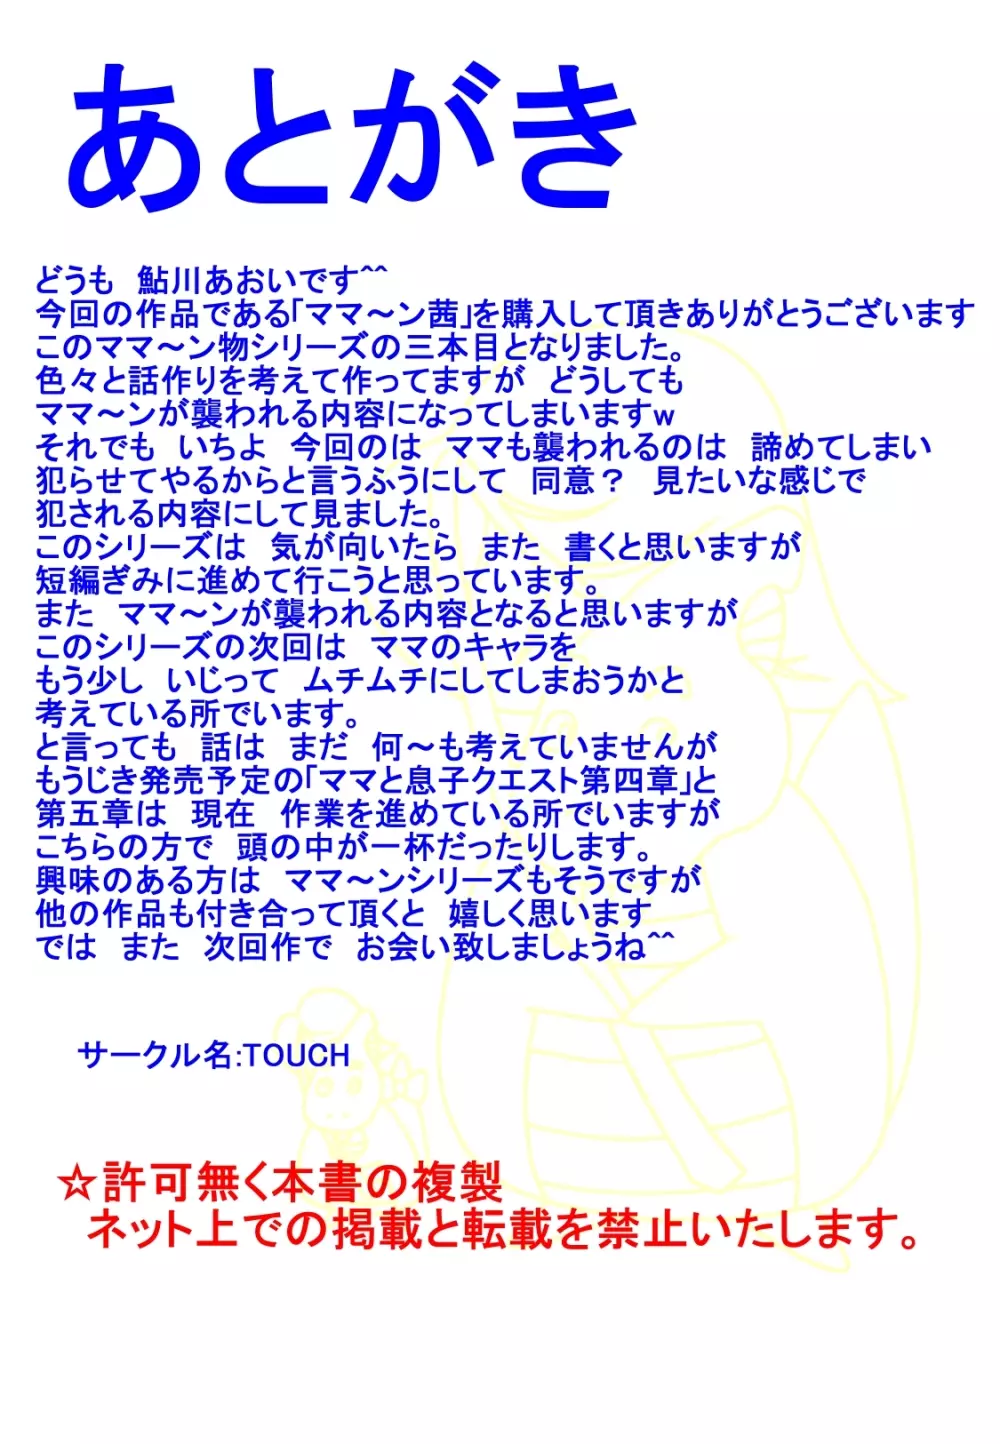 あとがき
どうも　鮎川あおいです^^
今回の作品である「ママ～ン茜」を購入して頂きありがとうございます
このママ～ン物シリーズの三本目となりました。
色々と話作りを考えて作ってますが　どうしても
ママ～ンが襲われる内容になってしまいますw
それでも　いちよ　今回のは　ママも襲われるのは　諦めてしまい
犯らせてやるからと言うふうにして　同意？　見たいな感じで
犯される内容にして見ました。
このシリーズは　気が向いたら　また　書くと思いますが
短編ぎみに進めて行こうと思っています。
また　ママ～ンが襲われる内容となると思いますが
このシリーズの次回は　ママのキャラを
もう少し　いじって　ムチムチにしてしまおうかと
考えている所でいます。
と言っても　話は　まだ　何～も考えていませんが
もうじき発売予定の「ママと息子クエスト第四章」と
第五章は　現在　作業を進めている所でいますが
こちらの方で　頭の中が一杯だったりします。
興味のある方は　ママ～ンシリーズもそうですが
他の作品も付き合って頂くと　嬉しく思います
では　また　次回作で　お会い致しましょうね^^
サークル名:TOUCH
☆許可無く本書の複製
ネット上での掲載と転載を禁止いたします。